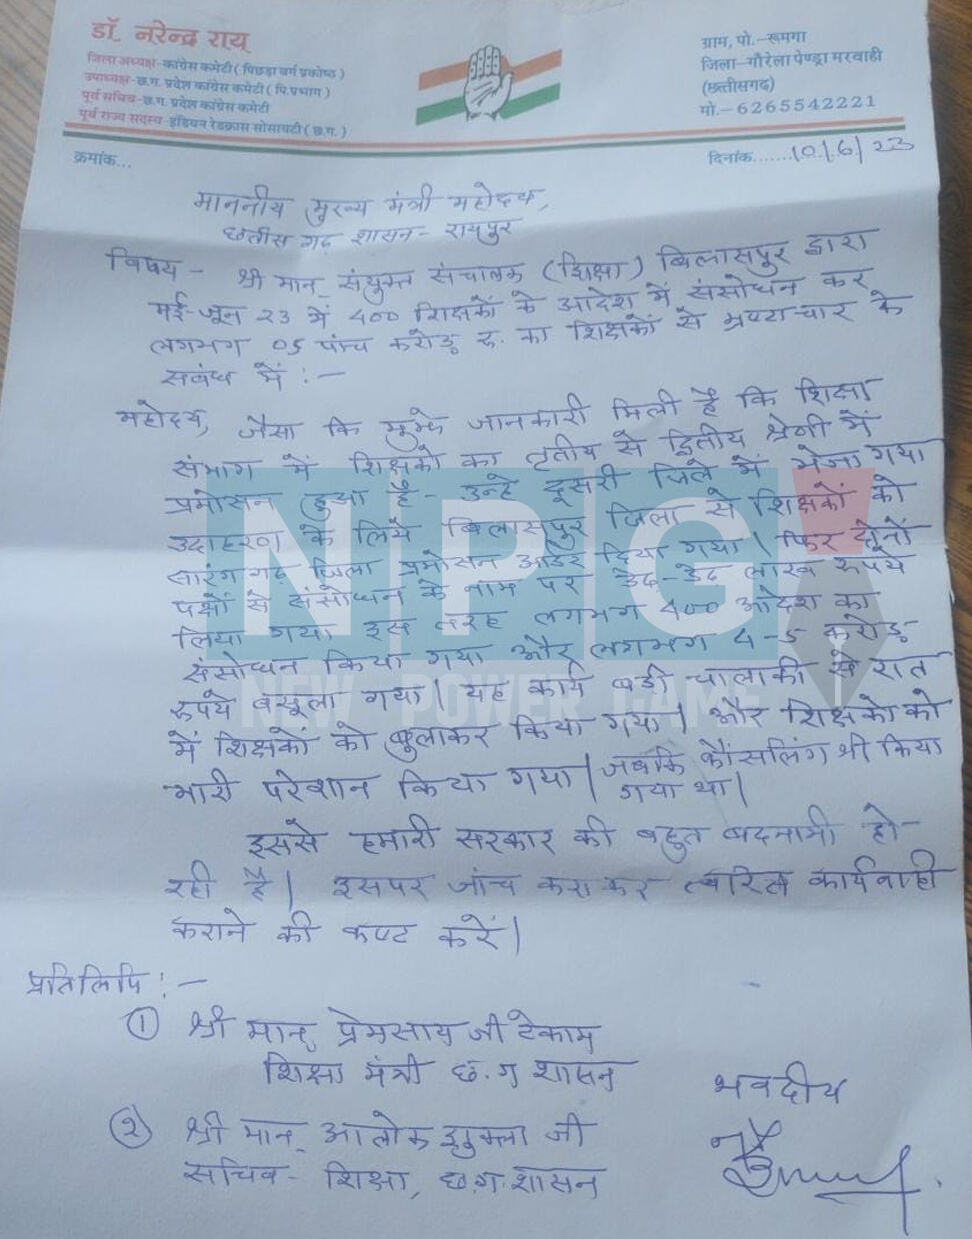 डॉ. नरेन्द्र राय
जिला अध्यक्ष-कांग्रेस कमेटी ( पिछड़ा वर्ग प्रकोष्ठ )
उपाध्यक्ष-छ.ग. प्रदेश कांग्रेस कमेटी ( पि.प्रभाग )
पूर्व सचिव-छ.ग. प्रदेश कांग्रेस कमेटी
पूर्व राज्य सदस्य-इंडियन रेडक्रास सोसायटी ( छ.ग. )
ग्राम, पो.-रूमगा
जिला-गौरेला पेण्ड्रा मरवाही
(छत्तीसगढ़)
मो.-6265542221
क्रमांक...
दिनांक.......10/6/23
माननीय मुख्य मंत्री महोदय,
छत्तीस गढ़ शासन- रायपुर
विषय - श्री मान् संयुक्त संचालक (शिक्षा) बिलासपुर द्वारा
मई-जून 23 में 400 शिक्षकों के आदेश में संसोधन कर
लगभग 05 पांच करोड़ रु. का शिक्षकों से भ्रष्टाचार के
सबंध में :-
महोदय, जैसा कि मुझे जानकारी मिली है कि शिक्षा
संभाग में शिक्षको का तृतीय से द्वितीय श्रेणी में
प्रमोसन हुआ है- उन्हे दूसरी जिले में भेजा गया
उदाहरण के लिये बिलासपुर जिला से शिक्षकों को
सारंगगढ़ जिला प्रमोसन आर्डर दिया गया। फिर दोनों
पक्षों से संसोधन के नाम पर डेढ़-डेढ़ लाख रूपये
लिया गया इस तरह लगभग 400 आदेश का
संसोधन किया गया और लगभग 4-5 करोड़
रुपये वसूला गया। यह कार्य बड़ी चालाकी से रात
में शिक्षकों को बुलाकर किया गया। और शिक्षको को
भारी परेशान किया गया। जबकि कौंसलिंग भी किया
गया था।
इससे हमारी सरकार की बहुत बदनामी हो-
रही है। इसपर जांच कराकर त्वरित कार्यवाही
कराने की कष्ट करें।
प्रतिलिपि :-
① श्री मान् प्रेमसाय जी टेकाम
शिक्षा मंत्री छ.ग शासन
② श्री मान् आलोक शुक्ला जी
सचिव- शिक्षा, छ.ग. शासन
भवदीय
NPG
NEW POWER GAME